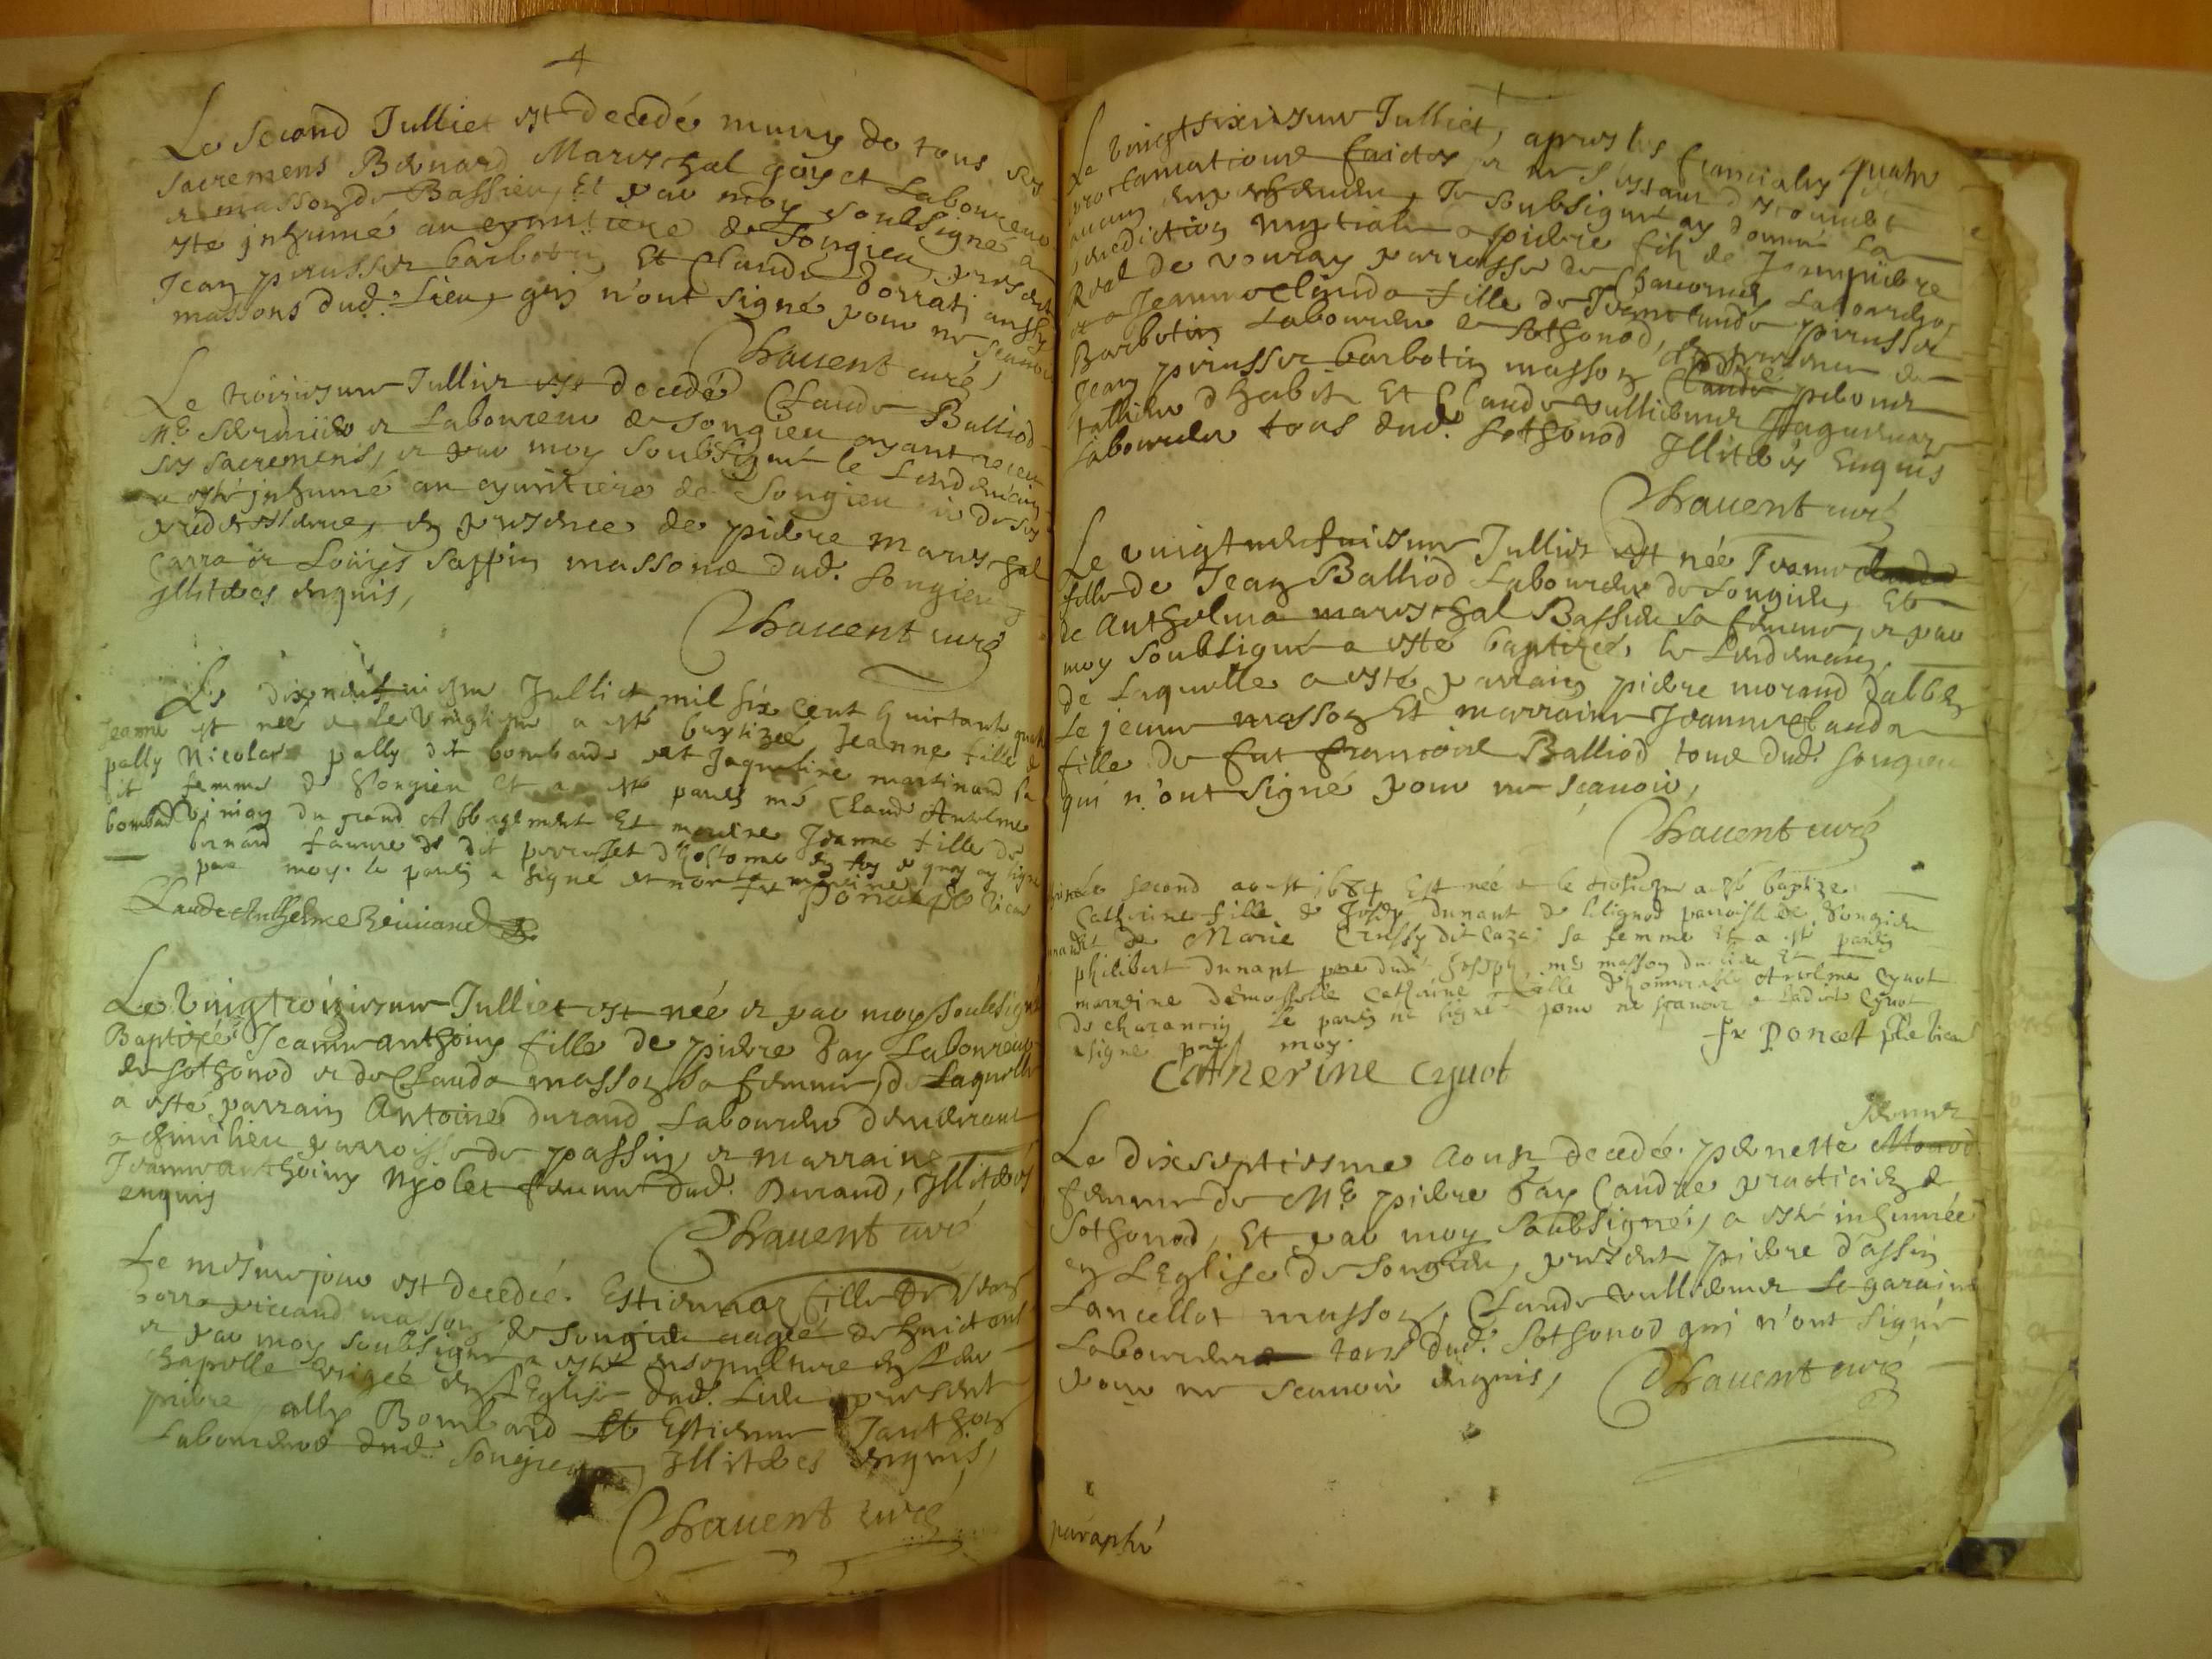 Le second Julliet est decedé muny de tous ses
sacremens Bernard Mareschal goy et Laboureur
et masson de Bassieu, Et par moy soubsigné a
esté inhumé au cymitiere de Songieu, present
Jean perusset barbotin Et Claude Dorrati aussy
massons dud. Lieu, qui n'ont signé pour ne scavoir
Chauent curé,
Le troiziesme Julliet est decedé Claude Balliod
Me et Laboureur de Songieu ayant receu
ses sacremens, et par moy soubsigné le Lendemain
a esté inhumé au cymitiere de Songieu
en presence de pierre mareschal
Carra et Louys Sappin massons dud. Songieu
illiteres enquis,
Chauent curé
Le dixneufviesme Julliet mil six cent huictante quatre
Jeanne est neé et le vingtiesme a esté baptizeé Jeanne fille de
pally Nicolas pally dit bombard et Jaqueline martinand sa
dit femme de Songieu Et a esté parrin mé Claude Antelme
bombad du grand Abbergement Et mareine Jeanne fille de
bernard dit perrusset en foy de quoy ay signé
par moy. le parrin a signé et non la mareine
fr poncet pbr vicaire
Claude Anthelme
Le vingtroiziesme Julliet est née et par moy soubsigné
Baptizeé Jeanne anthoine fille de pierre Fay Laboureur
de Sothonod et de Clauda masson sa femme, de Laquelle
a esté parrain Antoine Durand Laboureur demeurant
a chimilieu parroisse de passin, et marraine
Jeanne anthoine Nyolet femme dud. Durand, Illiteres
enquis
Chauent curé
Le mesme jour est decedeé. Estiennaz fille de
masson de Songieu aageé de huict ans
et par moy soubsigné a esté ensepulture en Leur
chapelle erigeé en L'Eglise dud. Lieu present
pierre pally Bombard Et Estienne Janthon
Laboureurs dud. Songieu, Illiteres enquis,
Chauent curé
Le vingtsixiesme Julliet, apres les fiancialles quatre
proclamations faictes et ne s'estant descouvert
aucun empeschement, Je soubsigné ay donné La
benediction nuptiale a pierre fils de Jeanpierre
Real de vouray parroisse de Chavornay Laboureur
et a Jeanne clauda fille de Jeanclaude perusset
Barbotin Laboureur de Sothonod, en presence de
Jean perusset barbotin masson Claude pebouer
tallieur d'habit Et Claude vulliemez Jaquenar
Laboureur tous dud. Sothonod Illiteres Enquis
Chauent curé
Le vingtneufviesme Julliet est née Jeanne
fille de Jean Balliod Laboureur de Songieu, Et
de Anthelma mareschal Bassieu sa femme, et par
moy soubsigné a esté baptizeé, le Lendemain,
de Laquelle a esté parrain pierre morand Dalbez
Le jeune masson Et marraine Jeanneclauda
fille de fut francois Balliod tous dud. Songieu
qui n'ont signé pour ne scavoir,
Chauent curé
second aoust 1684 Est née et le troisiesme a esté baptize
Catherine fille de Joseph dunant de lilignod parroisse de Songieu
Et de Marie Crussy dit Caza sa femme Et a esté parrin
philibert dunant pere dud. Joseph, me masson du lieu Et
mareine demoiselle Catherine fille d'honnorable Antelme Cyuot
de charancin, le parrin na signé pour ne scavoir et ladicte Cyuot
a signé par moy.
fr Poncet pbr vicaire
Catherine cyuot
Le dixseptiesme Aoust decedeé. pernette
femme de Me pierre Fay Candre practicien de
Sothonod, Et par moy soubsigné, a esté inhumée
en L'Eglise de Songieu, present pierre d'assin
Lancellot masson, Claude vulliemez Legarain
Laboureurs tous dud. Sothonod qui n'ont signé
pour ne scavoir enquis, Chauent curé
paraphé